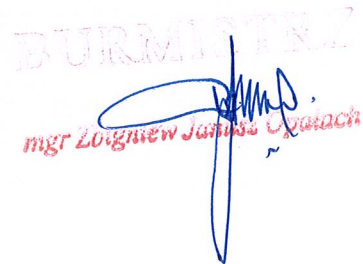 BURMISTRZ
mgr Zbigniew Janusz Opalach